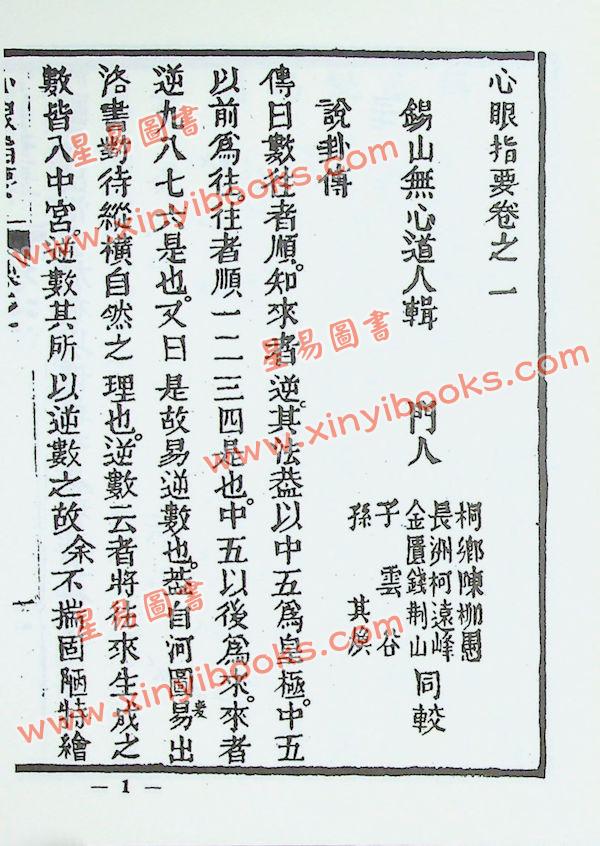 心眼指要卷之一
錫山無心道人輯
門人
桐鄉陳柳愚
長洲柯遠峰
金匱錢荆山
子雲谷
孫其煥
同較
說卦傳
傳曰數往者順。知來者逆。其法葢以中五爲皇極。中五
以前爲往。往者順一二三四是也。中五以後爲來。來者
逆九八七六是也。又曰是故易逆數也。葢自河圖易出
變
洛書對待縱橫自然之理也。逆數云者將往來生成之
數皆入中宮。逆數其所以逆數之故余不揣固陋特繪
心眼指要
卷之一
— 1 —
星易圖書
www.xinyibooks.com
星易圖書
www.xinyibooks.com
星易圖書
www.xinyibooks.com